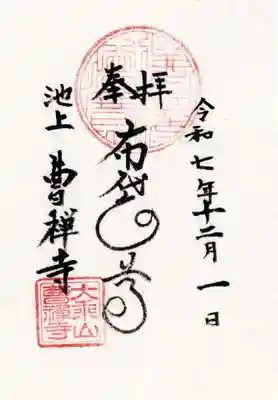 令和七年十二月一日
奉拝
布袋尊
池上 曹禅寺
大乗山
曹禅寺